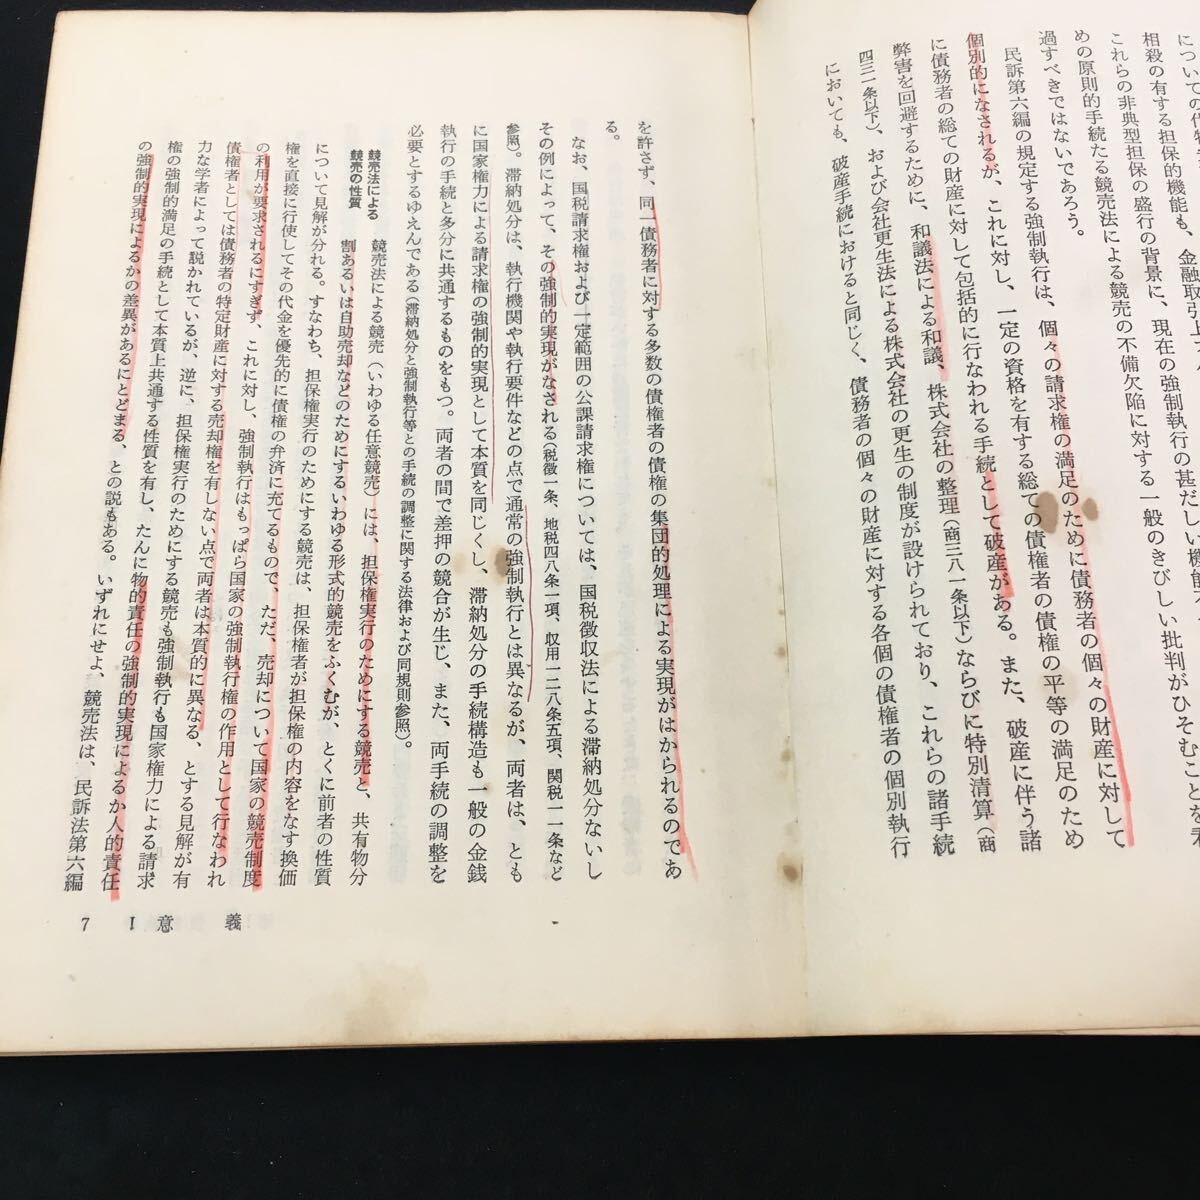 相殺の有する担保的機能も、金融取引上
これらの非典型担保の盛行の背景に、現在の強制執行の甚だしい機能
めの原則的手続たる競売法による競売の不備欠陥に対する一般のきびしい批判がひそむことを
過すべきではないであろう。
民訴第六編の規定する強制執行は、個々の請求権の満足のために債務者の個々の財産に対して
個別的になされるが、これに対し、一定の資格を有する総ての債権者の債権の平等の満足のため
に債務者の総ての財産に対して包括的に行なわれる手続として破産がある。また、破産に伴う諸
弊害を回避するために、和議法による和議、株式会社の整理（商三八一条以下）ならびに特別清算（商
四三一条以下）、および会社更生法による株式会社の更生の制度が設けられており、これらの諸手続
においても、破産手続におけると同じく、債務者の個々の財産に対する各個の債権者の個別執行
を許さず、同一債務者に対する多数の債権者の債権の集団的処理による実現がはかられるのであ
る。
なお、国税請求権および一定範囲の公課請求権については、国税徴収法による滞納処分ないし
その例によって、その強制的実現がなされる（税徴一条、地税四八条一項、収用一二八条五項、関税一一条など
参照）。滞納処分は、執行機関や執行要件などの点で通常の強制執行とは異なるが、両者は、とも
に国家権力による請求権の強制的実現として本質を同じくし、滞納処分の手続構造も一般の金銭
執行の手続と多分に共通するものをもつ。両者の間で差押の競合が生じ、また、両手続の調整を
必要とするゆえんである（滞納処分と強制執行等との手続の調整に関する法律および同規則参照）。
競売法による
競売の性質
競売法による競売（いわゆる任意競売）には、担保権実行のためにする競売と、共有物分
割あるいは自助売却などのためにするいわゆる形式的競売をふくむが、とくに前者の性質
について見解が分れる。すなわち、担保権実行のためにする競売は、担保権者が担保権の内容をなす換価
権を直接に行使してその代金を優先的に債権の弁済に充てるもので、ただ、売却について国家の競売制度
の利用が要求されるにすぎず、これに対し、強制執行はもっぱら国家の強制執行権の作用として行なわれ
債権者としては債務者の特定財産に対する売却権を有しない点で両者は本質的に異なる、とする見解が有
力な学者によって説かれているが、逆に、担保権実行のためにする競売も強制執行も国家権力による請求
権の強制的満足の手続として本質上共通する性質を有し、たんに物的責任の強制的実現によるか人的責任
の強制的実現によるかの差異があるにとどまる、との説もある。いずれにせよ、競売法は、民訴法第六編
7　I　意　義